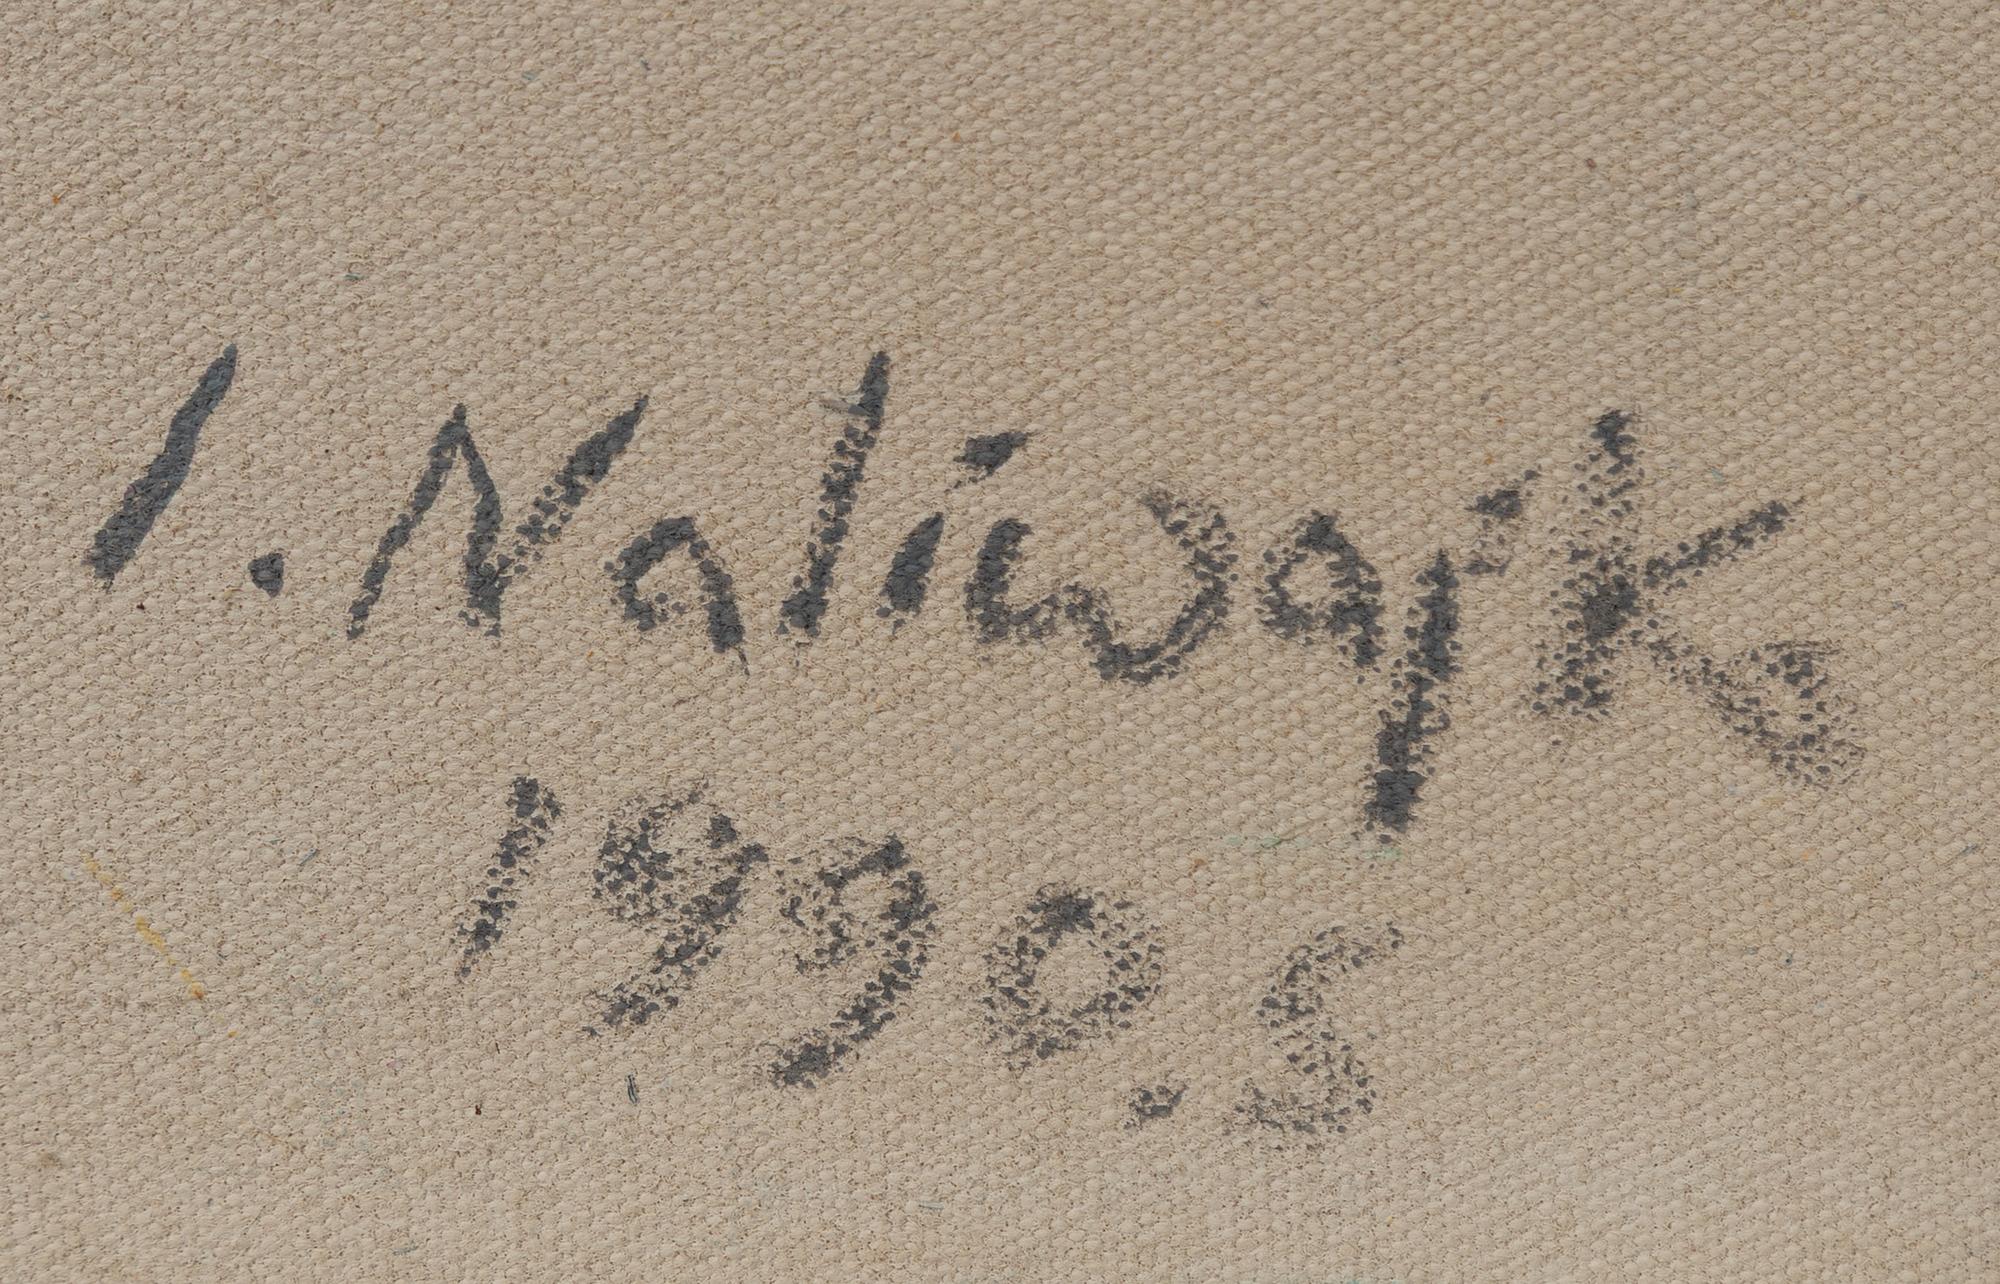 I. Naliwajko
1990.S